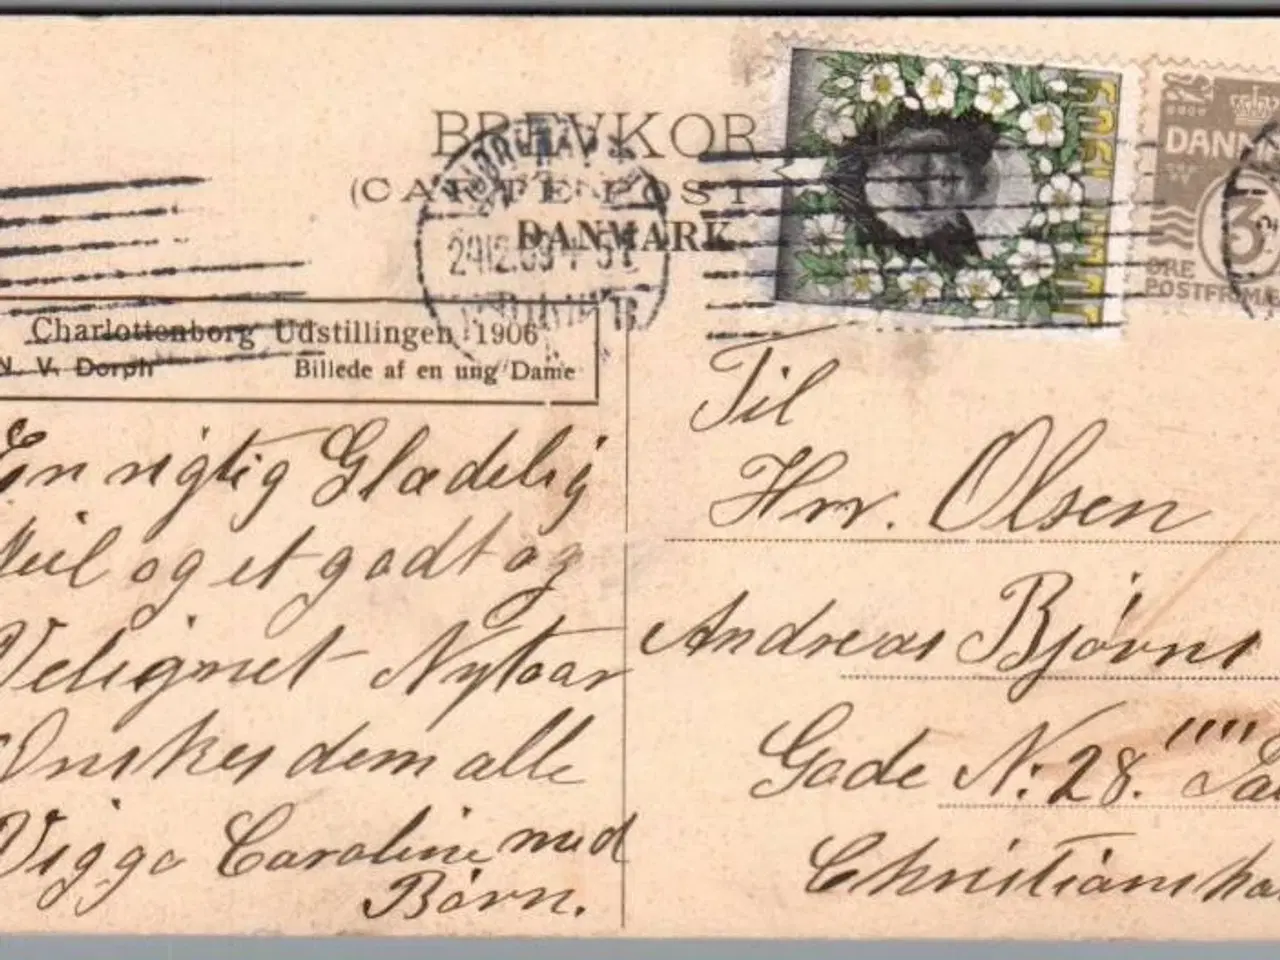 BREVKOR
(CARTE POST
DANMARK
JULEN 1909
DANM
3
ØRE
POSTFRIM
Charlottenborg Udstillingen 1906
N. V. Dorph Billede af en ung Dame
En rigtig Glædelig
Juil og et godt og
Velignet Nytaar
Ønskes dem alle
Viggo Caroline med
Børn.
Til
Hrr. Olsen
Andreas Bjørns
Gade N: 28. """ Sa
Christiansha